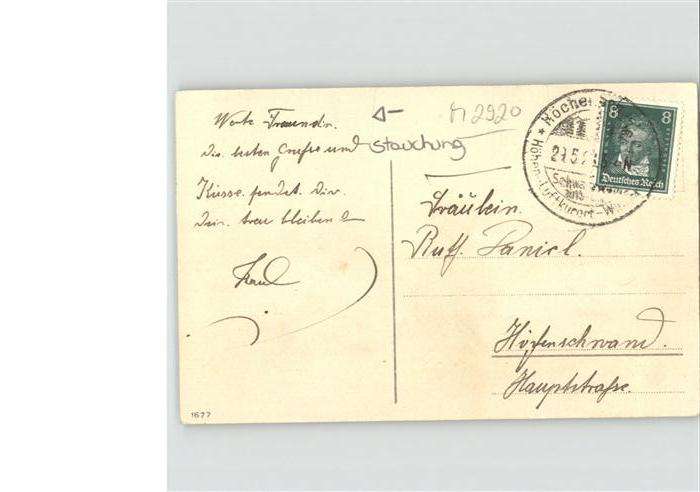 Werte Freundin.
Die besten Grüsse und
Küsse sendet Dir
Dein treu bleibender
Paul
Stauchung
M 2920
8 8
Deutsches Reich
Höchen
29.5.
Schwa
Höhen-Luftkurort-W
Fräulein.
Ruth Daniel.
Höfenschwand.
Hauptstraße.
1677